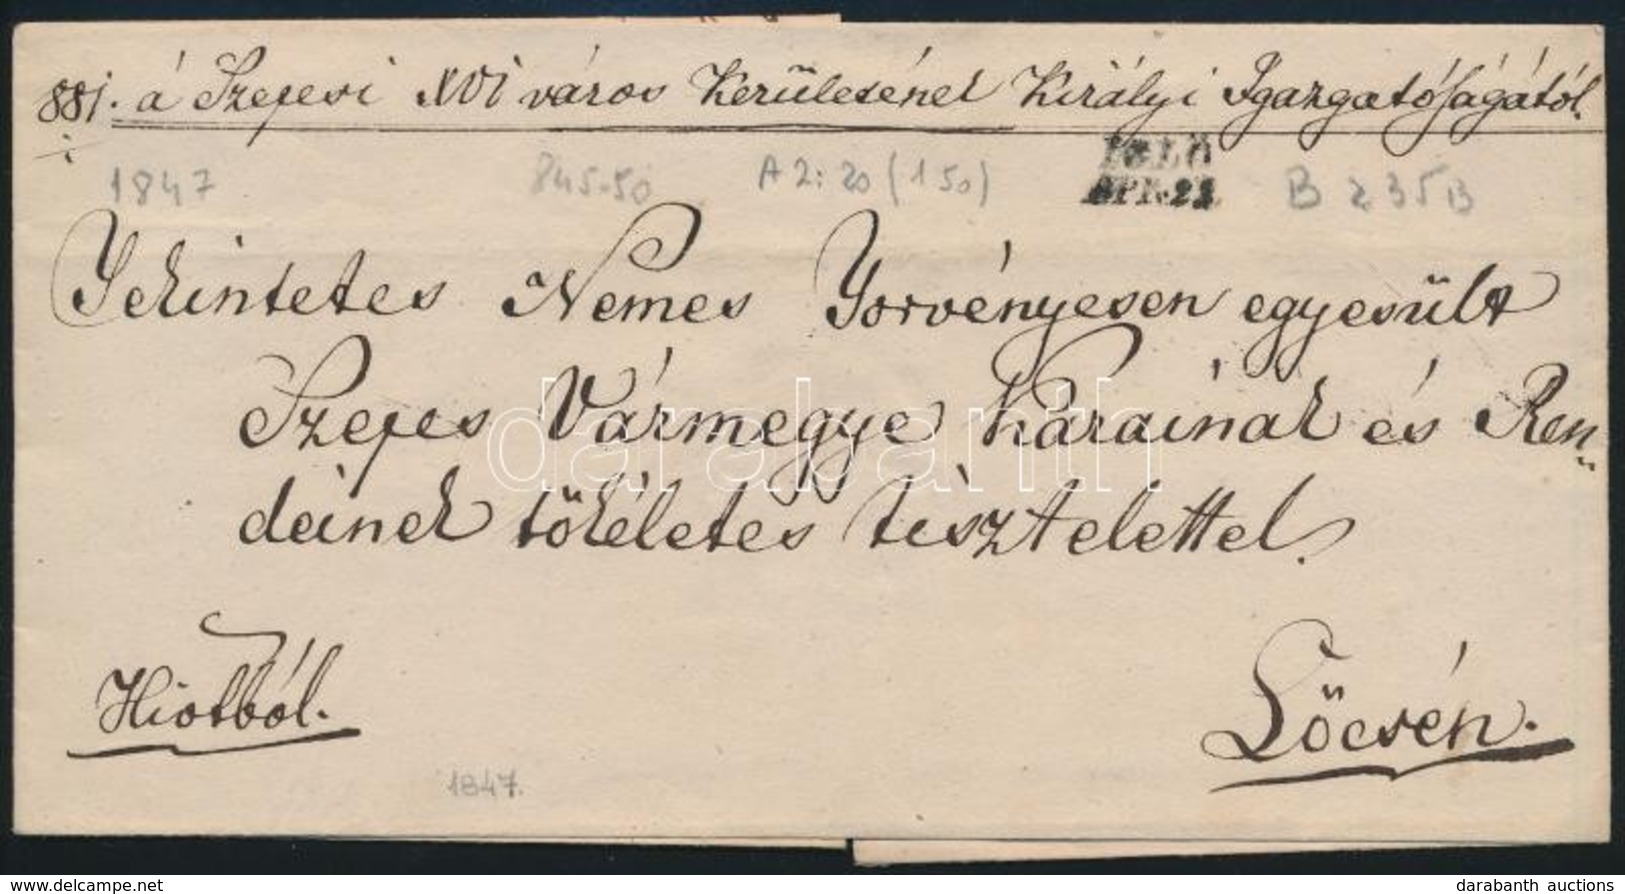 881. á Szepesi XVI város Kerületének Királyi Igazgatóságától.
1847 845-50 A 2: 20 (150) B 235 B
IGLÓ
APR. 22
Tekintetes Nemes Törvényesen egyesült
Szepes Vármegye Karainak és Ren„
deinek tökéletes tisztelettel.
Hivatból.
Lőcsén.
1847.
darabanth
delcampe.net
darabanth auctions